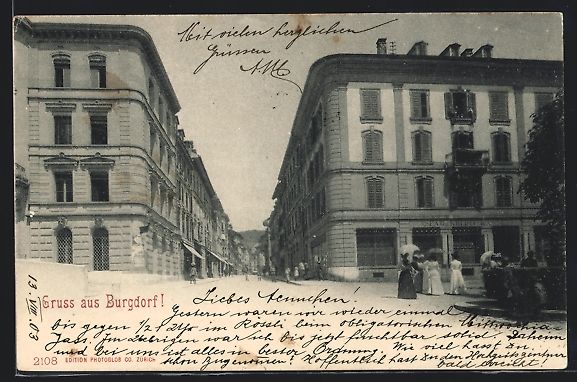 Mit vielen herzlichen
Grüssen
13. VIII. 03
Gruss aus Burgdorf!
Liebes Aennchen!
Gestern waren wir wieder einmal
bis gegen 1/2 2 Uhr im Rössli beim obligatorischen
Jass. Im übrigen war ich bis jetzt furchtbar solid. Daheim
und bei uns ist alles in bester Ordnung. Wie viel hast zu
schon zugenommen? Hoffentlich hast zu den
bald erreicht!
2108 EDITION PHOTOGLOB CO. ZÜRICH